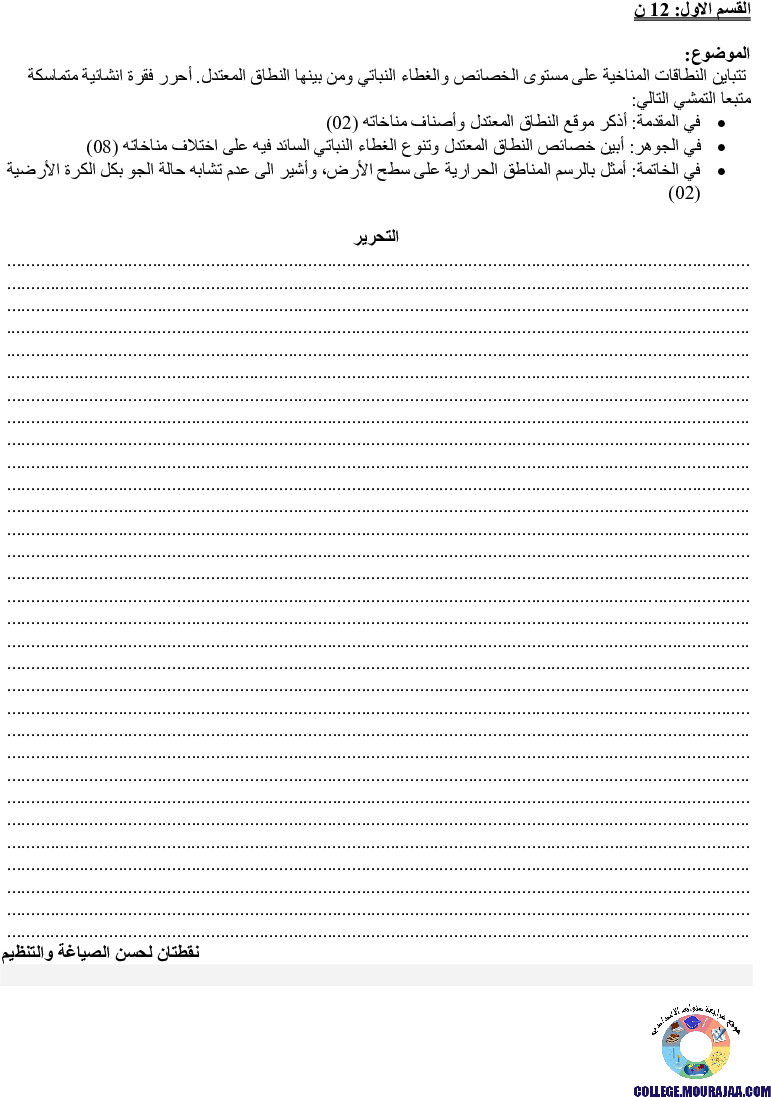 القسم الاول: 12 ن
الموضوع:
تتباين النطاقات المناخية على مستوى الخصائص والغطاء النباتي ومن بينها النطاق المعتدل. أحرر فقرة انشائية متماسكة
متبعا التمشي التالي:
• في المقدمة: أذكر موقع النطاق المعتدل وأصناف مناخاته (02)
• في الجوهر: أبين خصائص النطاق المعتدل وتنوع الغطاء النباتي السائد فيه على اختلاف مناخاته (08)
• في الخاتمة: أمثل بالرسم المناطق الحرارية على سطح الأرض، وأشير الى عدم تشابه حالة الجو بكل الكرة الأرضية
(02)
التحرير
نقطتان لحسن الصياغة والتنظيم
موقع مراجعة
COLLEGE.MOURAJAA.COM